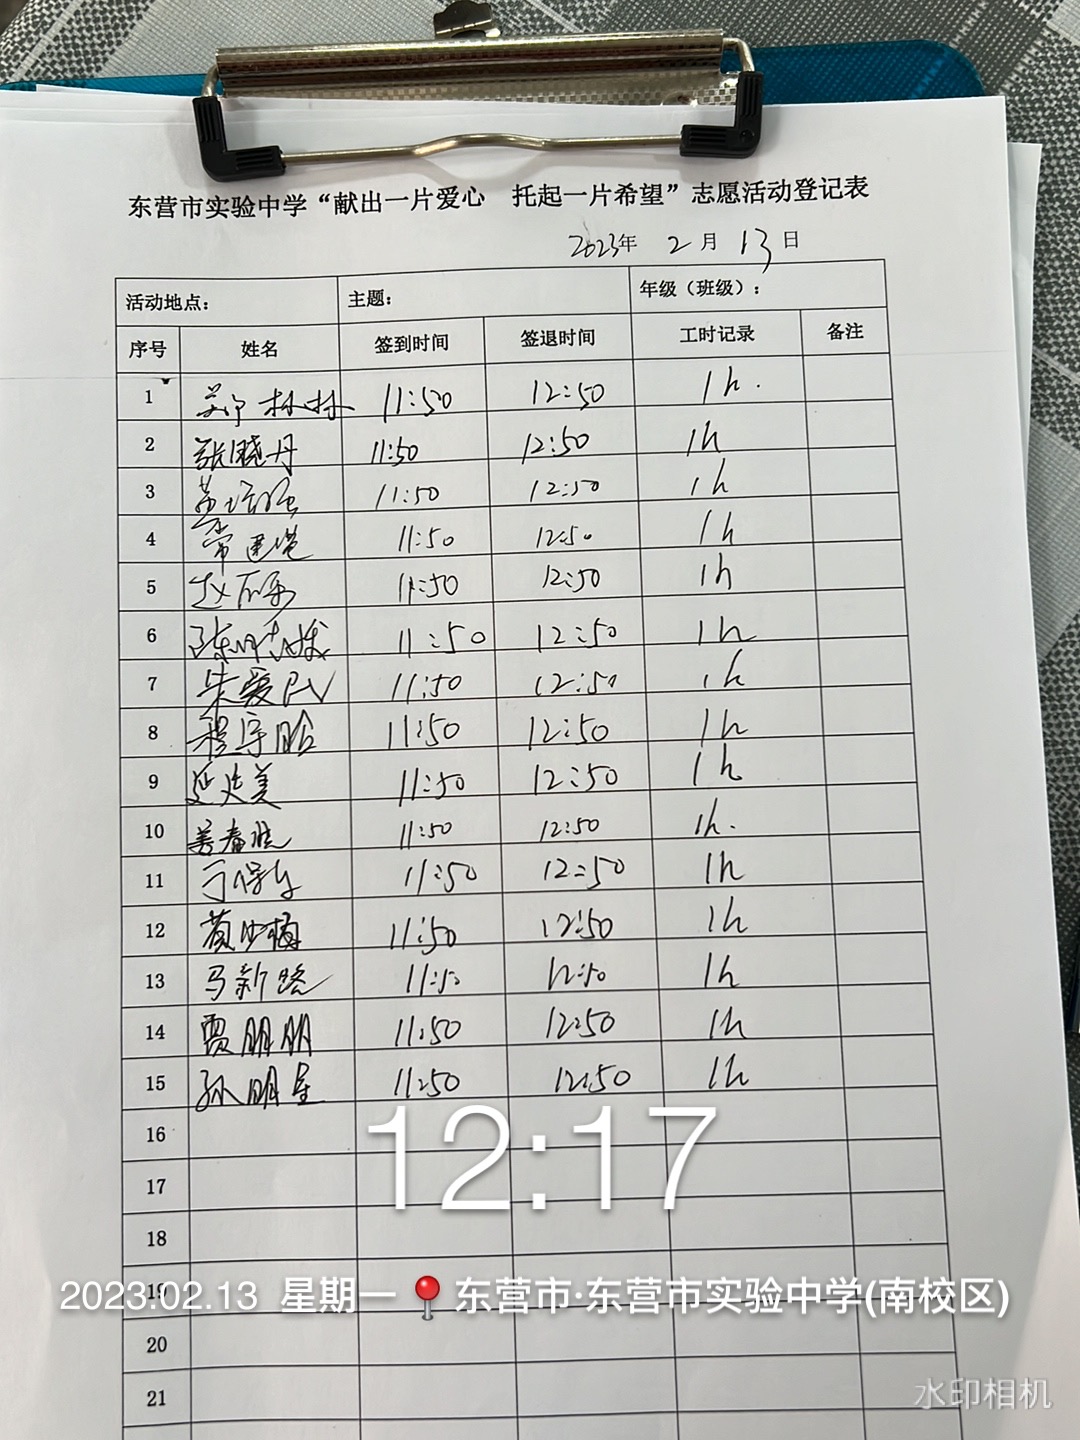 东营市实验中学“献出一片爱心 托起一片希望”志愿活动登记表
2023年 2月 13日
活动地点： 主题： 年级（班级）：
序号 姓名 签到时间 签退时间 工时记录 备注
1 郑林林 11:50 12:50 1h.
2 张晓丹 11:50 12:50 1h
3 11:50 12:50 1h
4 常建 11:50 12:50 1h
5 赵 11:50 12:50 1h
6 陈 11:50 12:50 1h
7 朱爱民 11:50 12:50 1h
8 程宇晗 11:50 12:50 1h
9 延廷美 11:50 12:50 1h
10 姜春 11:50 12:50 1h.
11 11:50 12:50 1h
12 黄少梅 11:50 12:50 1h
13 马新路 11:50 12:50 1h
14 贾朋朋 11:50 12:50 1h
15 孙明星 11:50 12:50 1h
16
12:17
17
18
19
2023.02.13 星期一 东营市·东营市实验中学(南校区)
20
21
水印相机